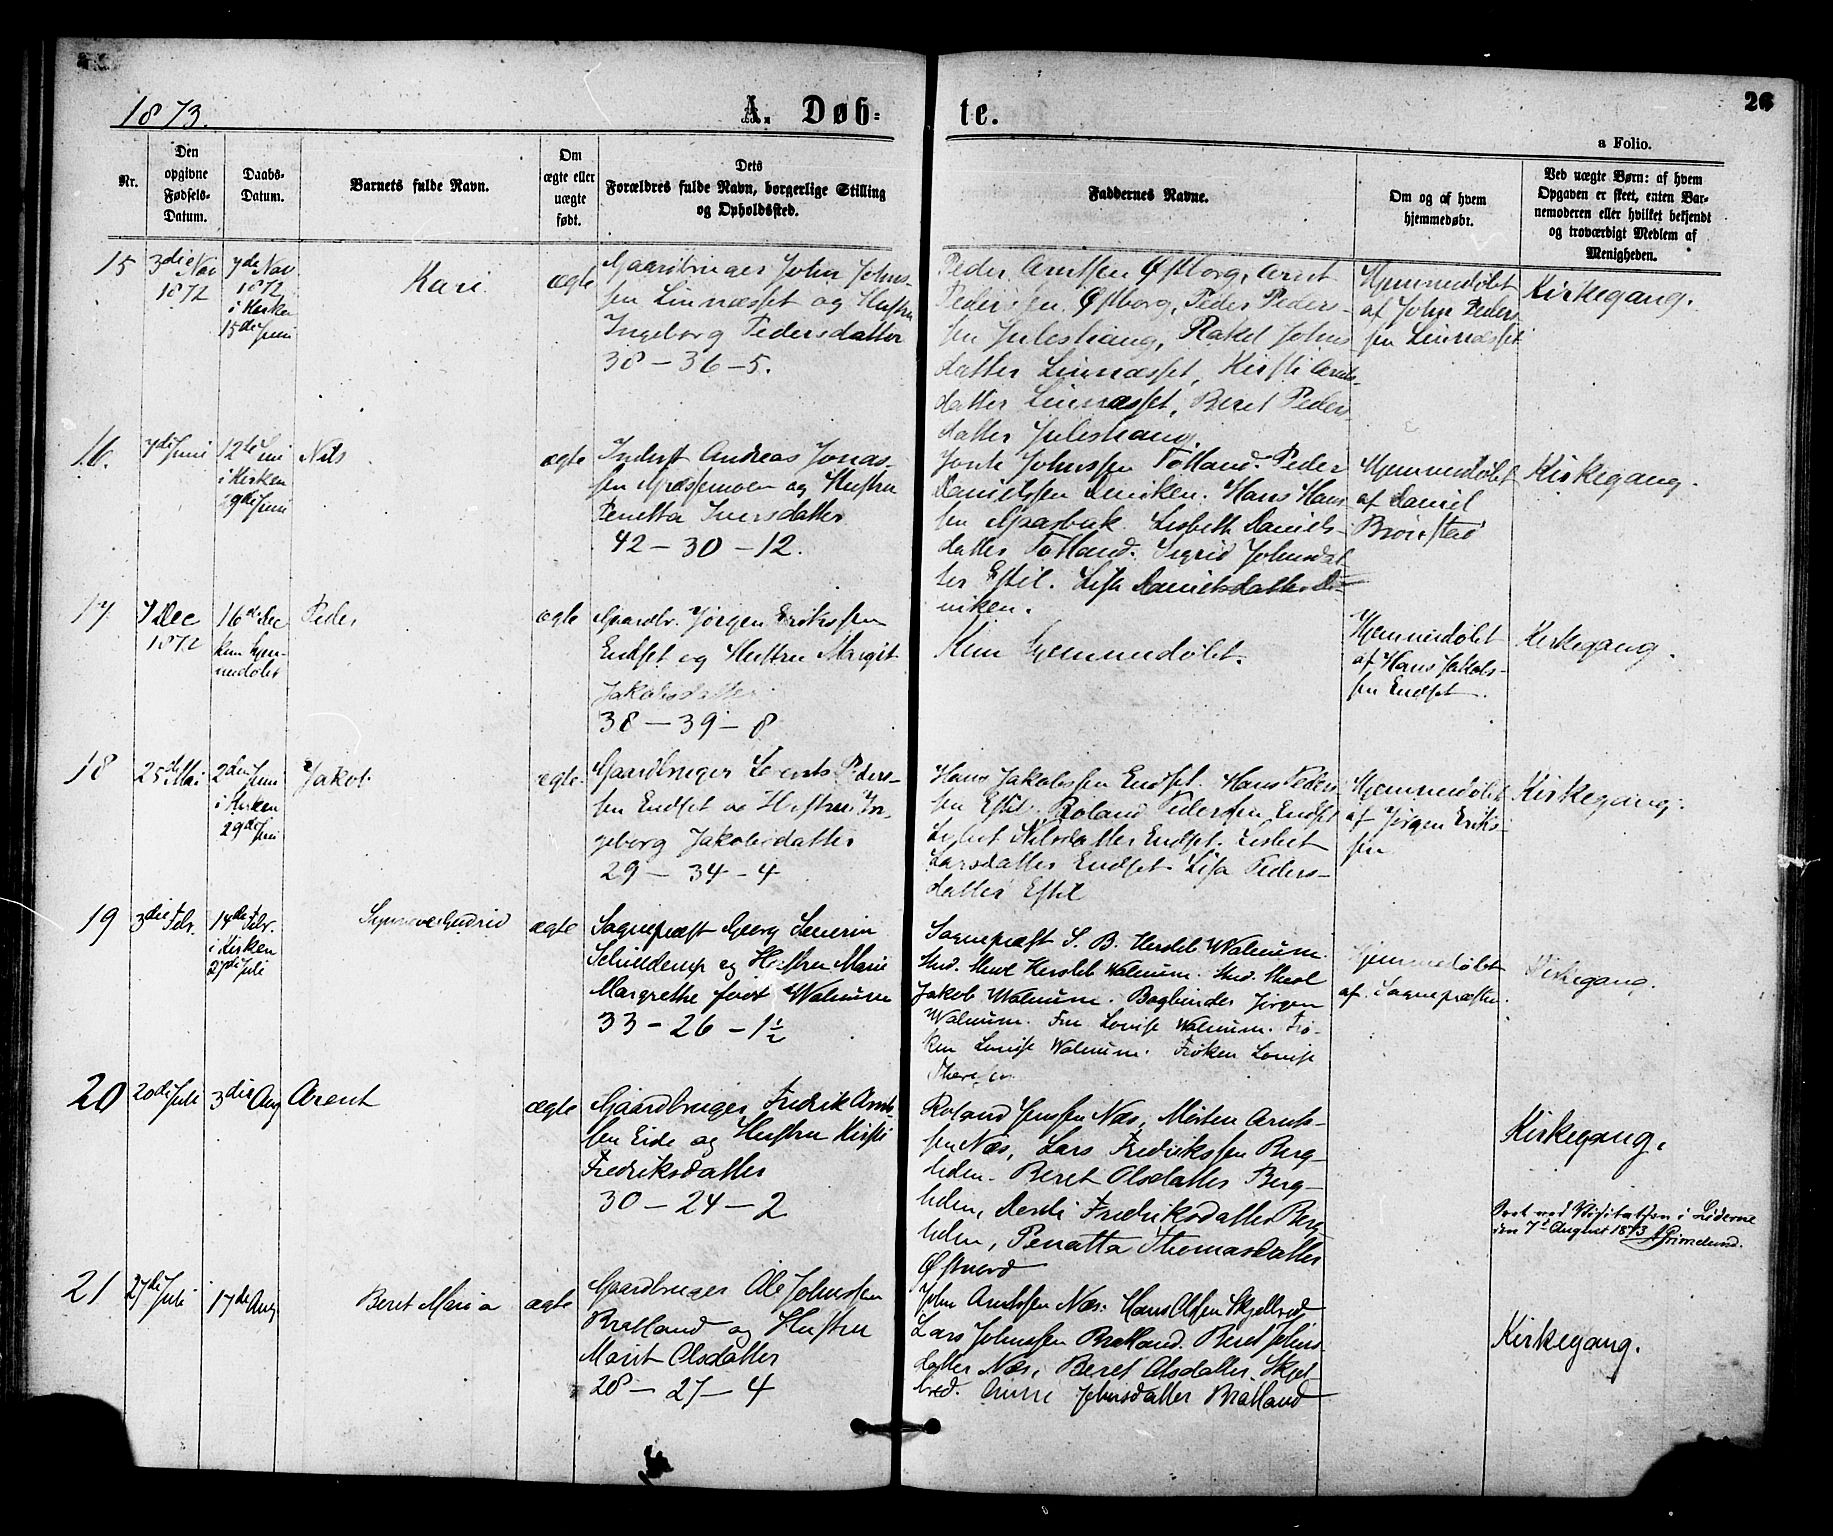 1873.
A. Døb-
te.
26
a Folio.
Nr.
Den opgivne Fødsels-Datum.
Daabs-Datum.
Barnets fulde Navn.
Om ægte eller uægte født.
Dets Forældres fulde Navn, borgerlige Stilling og Opholdssted.
Faddernes Navne.
Om og af hvem hjemmedøbt.
Ved uægte Børn: af hvem Opgaven er skeet, enten Barnemoderen eller hvilket bekjendt og troværdigt Medlem af Menigheden.
15
3die Nov
1872
7de Nov
1872
i Kirken
15de Juni
Kari
ægte
Gaardbruger John Johns-
sen Linnæsset og Hustru
Ingeborg Pedersdatter
38 - 36 - 5.
Peder Arntsen Østborg, Arnt
Pederssen Østborg, Peder Peders-
sen Juleshaug, Rakel Johns
datter Linnæsset, Kirsti Arnts-
datter Linnæsset, Beret Peders-
datter Juleshaug.
Hjemmedøbt
af John Peders-
sen Linnæsset
Kirkegang.
16.
7de Juni
12te Juni
i Kirken
29de Juni
Nils
ægte
Inderst Andreas Jonas-
sen og Hustru
Penetta Iversdatter
42 - 30 - 12.
Johnssen Totland. Peder
Danielssen Hans Hans
sen Lisbeth Daniels-
datter Totland. Sigrid Johnsdat
ter Estil. Lisa Danielsdatter
Hjemmedøbt
af Daniel
Brørstad
Kirkegang.
17.
7 Dec
1872
16de Dec
kun hjem-
medøbt
Peder
ægte
Gaardbr. Jørgen Erikssen
Endset og Hustru Margit
Jakobsdatter
38 - 39 - 8
Kun hjemmedøbt.
Hjemmedøbt
af Hans Jakobs-
sen Endset.
Kirkegang.
18
25de Mai
2den Juni
i Kirken
29de Juni
Jakob
ægte
Gaardbruger Lorents Peders-
sen Endset og Hustru In-
geborg Jakobsdatter
29 - 34 - 4
Hans Jakobssen Endset. Hans Peders-
sen Estil. Roland Pederssen Endset
Nilsdatter Endset. Lisbet
Larsdatter Endset. Lisa Peders-
datter Estil
Hjemmedøbt
af Jørgen Eriks-
sen
Kirkegang.
19
3die Febr.
14de Febr.
i Kirken
27de Juli
Synnøve Gudrid
ægte
Sognepræst Georg Severin
Schielderup og Hustru Marie
Margrethe født Walnum
33 - 26 - 1½
Sognepræst S. B. Hersleb Walnum.
Stud. Hersleb Walnum. Stud.
Jakob Walnum. Bogbinder Jørgen
Walnum. Fru Lovise Walnum. Frø-
ken Lovise Walnum. Frøken Lovise
Hjemmedøbt
af Sognepræsten.
Kirkegang.
20
20de Juli
3die Aug
Arent
ægte
Gaardbruger Fredrik Arnts-
sen Eide og Hustru Kirsti
Fredriksdatter
30 - 24 - 2
Roland Jenssen Næs, Morten Arnts-
sen Næs, Lars Fredrikssen Berg-
heden. Beret Olsdatter Berg-
heden, Fredriksdatter Berg
heden, Penatta Thomasdatter
Østnord
Kirkegang.
Seet ved Visitatsen i Liderne
den 7de August 1873. Grimelund.
21
27de Juli
17de Aug
Beret Maria
ægte
Gaardbruger Ole Johnssen
Bratland og Hustru
Marit Olsdatter
28 - 27 - 4
John Arntssen Næs. Hans Olsen Skjelbred,
Lars Johnssen Bratland. Beret Johns
datter Næs, Beret Olsdatter Skjel-
bred. Anne Johnsdatter Bratland
Kirkegang.